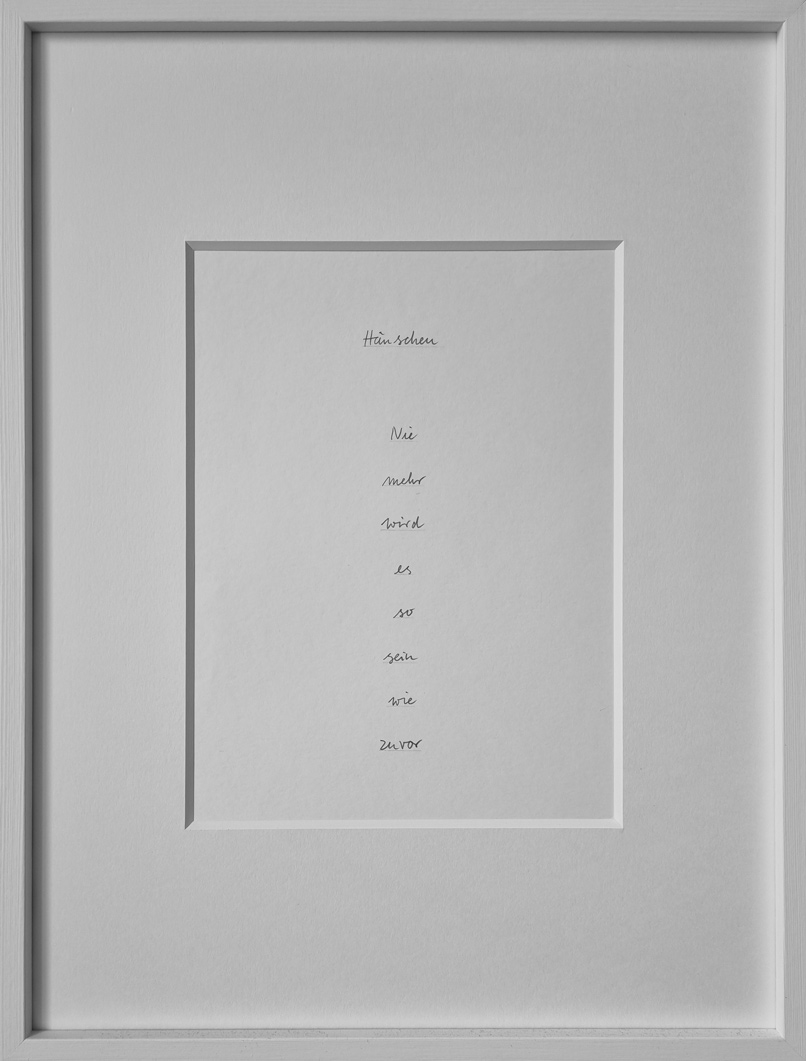 Hänschen
Nie
mehr
wird
es
so
sein
wie
zuvor